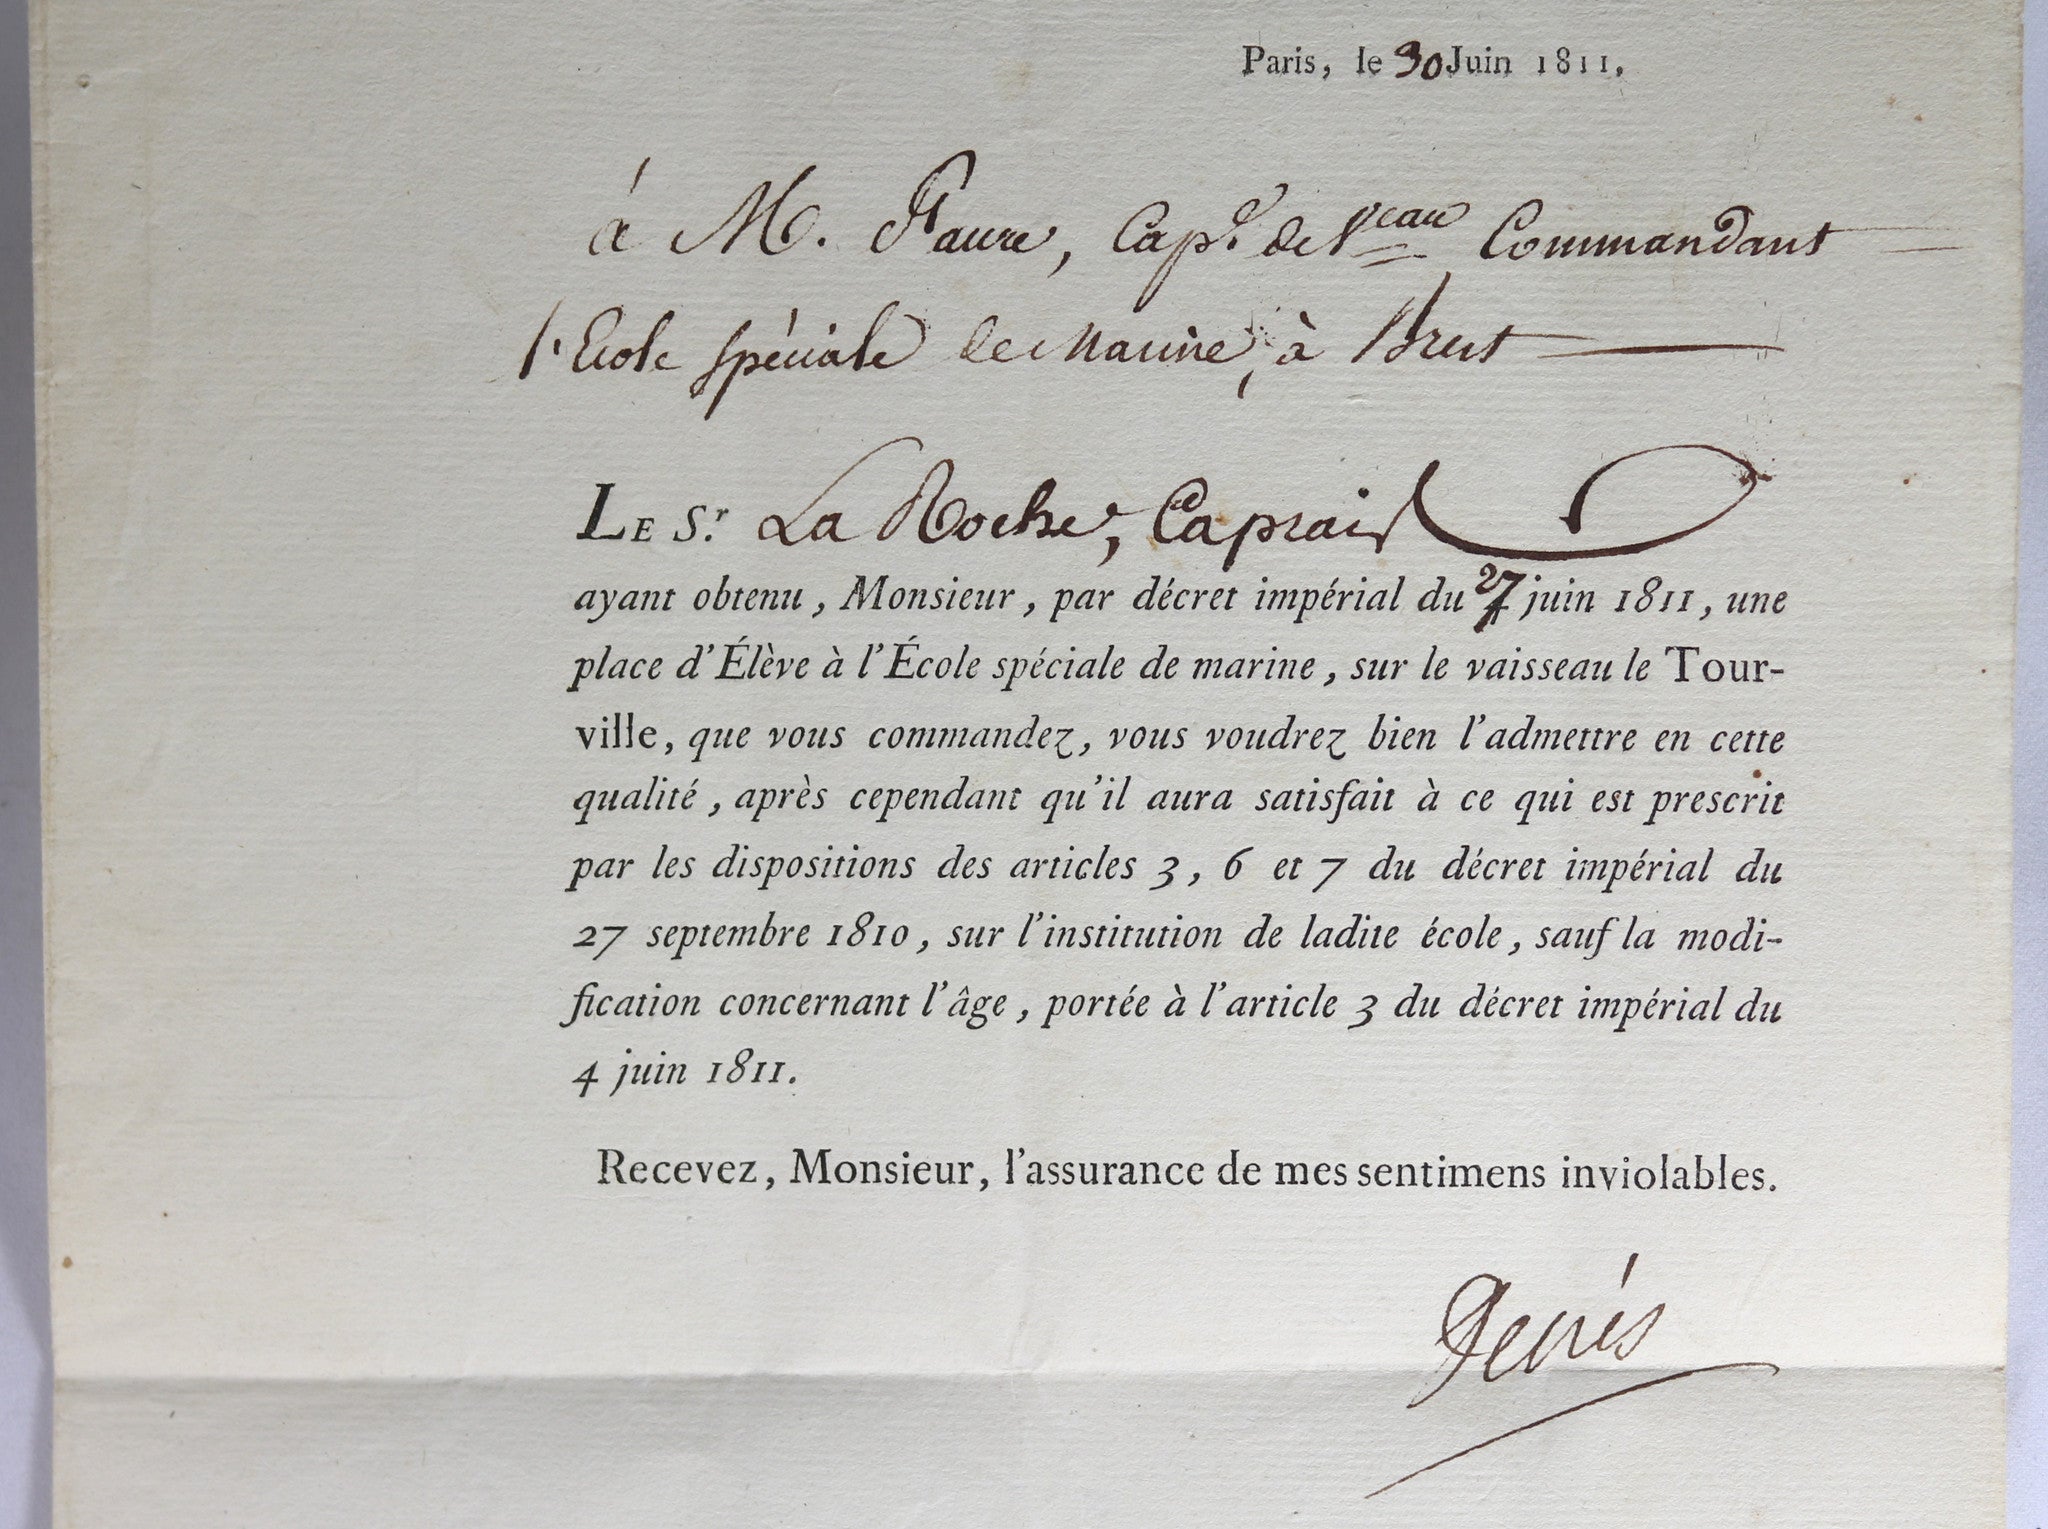 Paris, le 30 Juin 1811,
à M. Faure, Cap.e de Veau Commandant
l'Ecole spéciale de Marine, à Brest
LE S.r La Roche, Caprais
ayant obtenu, Monsieur, par décret impérial du 27 juin 1811, une
place d'Élève à l'École spéciale de marine, sur le vaisseau le Tour-
ville, que vous commandez, vous voudrez bien l'admettre en cette
qualité, après cependant qu'il aura satisfait à ce qui est prescrit
par les dispositions des articles 3, 6 et 7 du décret impérial du
27 septembre 1810, sur l'institution de ladite école, sauf la modi-
fication concernant l'âge, portée à l'article 3 du décret impérial du
4 juin 1811.
Recevez, Monsieur, l'assurance de mes sentimens inviolables.
Decrès